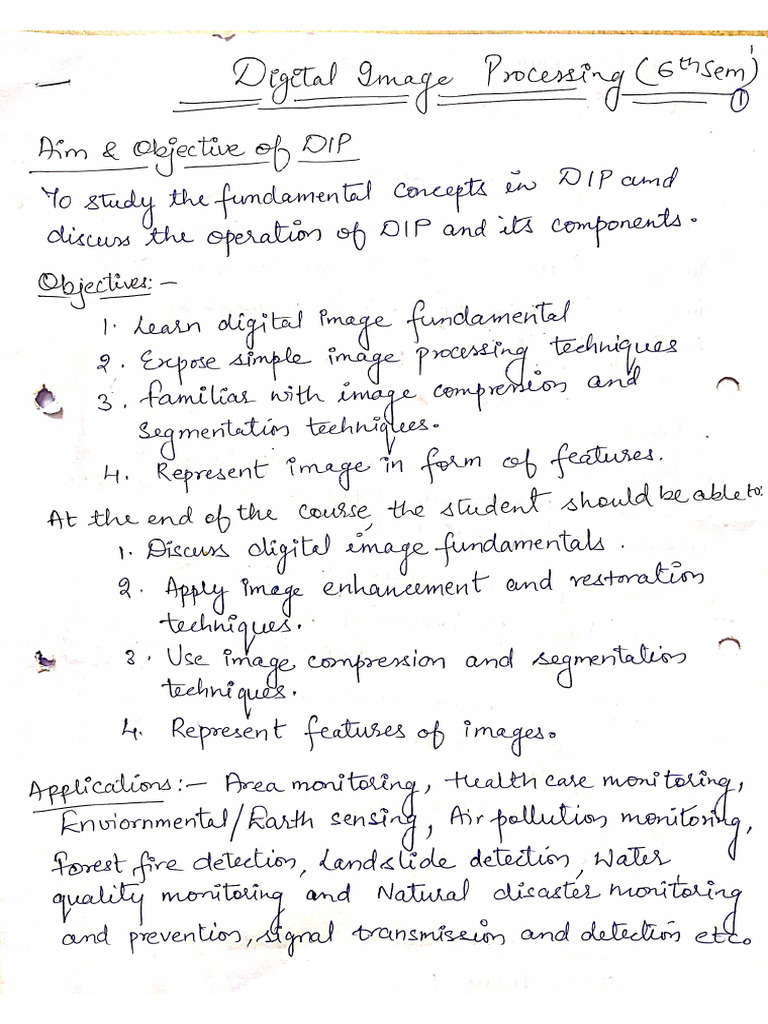 Digital Image Processing (6th Sem)
1
Aim & Objective of DIP
To study the fundamental concepts in DIP amd
discuss the operation of DIP and its components.
Objectives:-
1. Learn digital image fundamental
2. Expose simple image processing techniques
3. familiar with image compression and
segmentation techniques.
4. Represent image in form of features.
At the end of the course, the student should be able to:
1. Discuss digital image fundamentals.
2. Apply image enhancement and restoration
techniques.
3. Use image compression and segmentation
techniques.
4. Represent features of images.
Applications:- Area monitoring, Health care monitoring,
Enviornmental/Earth sensing, Air pollution monitoring,
Forest fire detection, Landslide detection, Water
quality monitoring and Natural disaster monitoring
and prevention, signal transmission and detection etc.